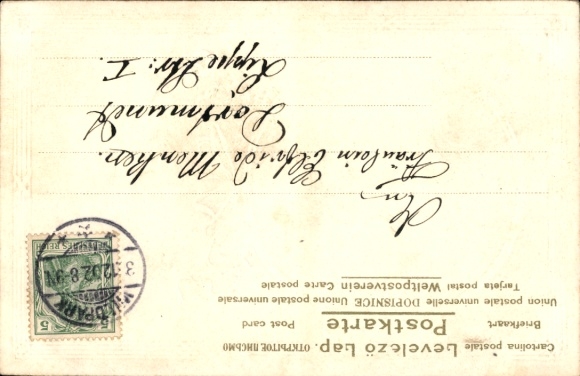 Cartolina postale Levelező Lap. ОТКРЫТОЕ ПИСЬМО
Briefkaart Postkarte Post card
Union postale universelle DOPISNICE Unione postale universale
Tarjeta postal Weltpostverein Carte postale
5 5
WILDPARK
An
Fräulein Elfriede Menken.
Dortmund
Lippe Str: I.